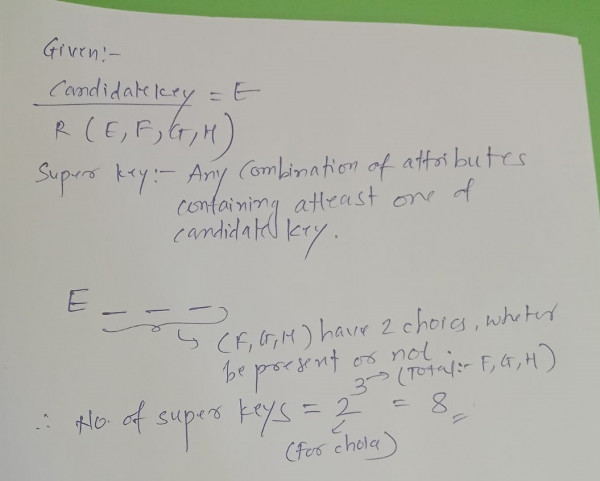 Given:-
Candidate key = E
R (E, F, G, H)
Super key:- Any Combination of attributes
containing atleast one of
candidate key.
E _ _ _
(F, G, H) have 2 choics, wheter
be present or not.
3 → (Total:- F, G, H)
∴ No. of super keys = 2 = 8
(For choice)